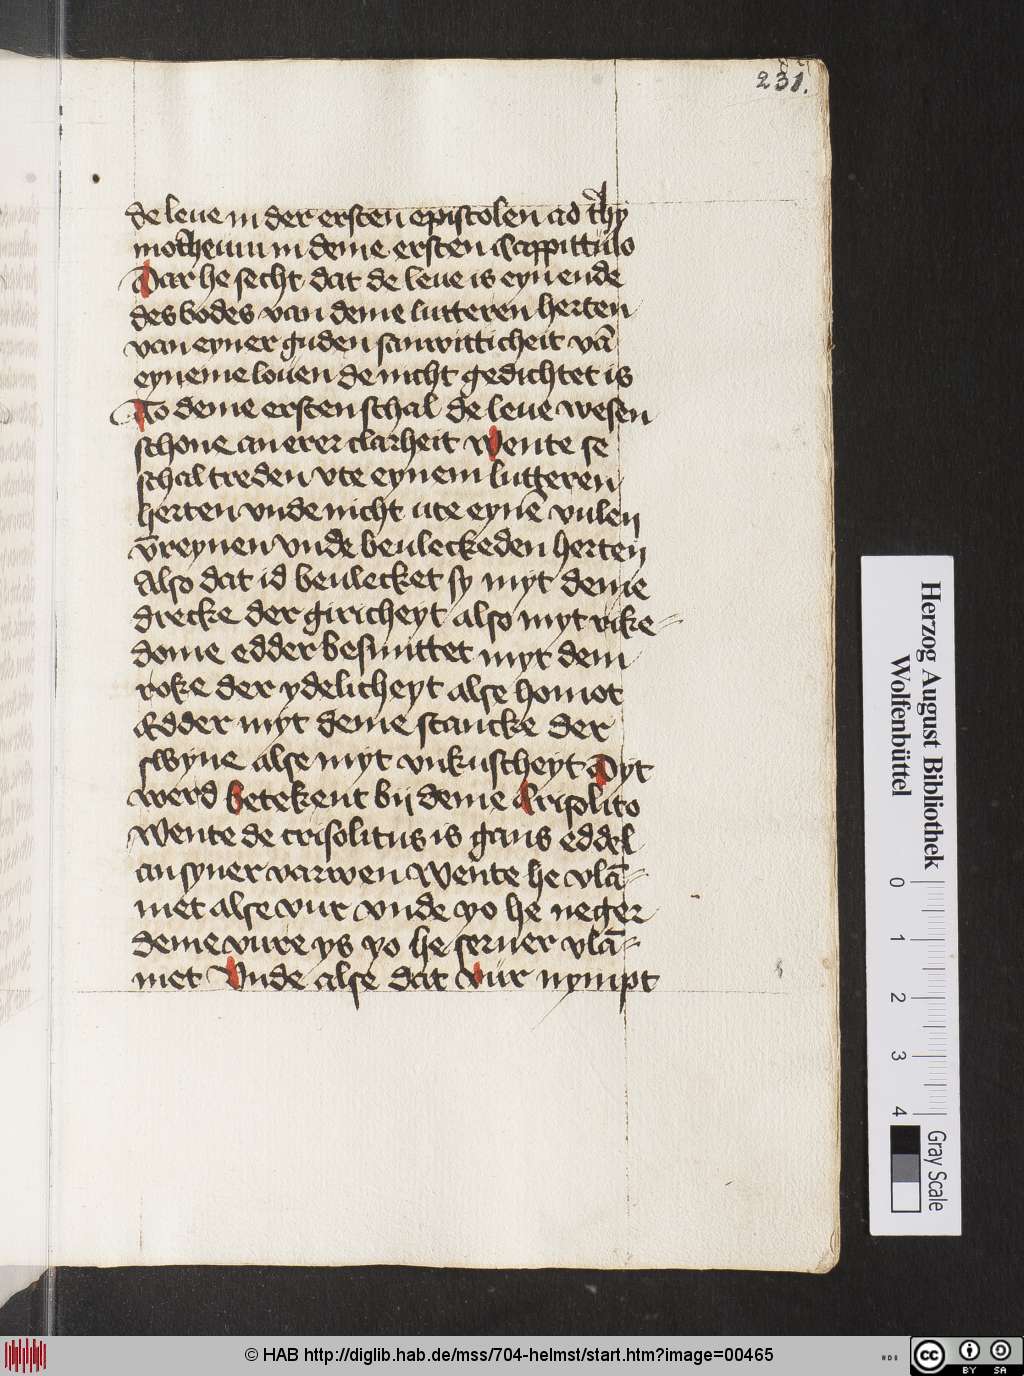 231.
de leue in der ersten epistolen ad thy
motheum in deme ersten Cappittulo
Dar he secht dat de leue is eyn ende
des bodes van deme lutteren herten
van eyner guden sanwitticheit vā
eyneme louen de nicht gedichtet is
To deme ersten schal de leue wesen
schone an erer clarheit Wente se
schal treden vte eynem lutteren
herten vnde nicht ute eynē vulen
vnreynen vnde beuleckeden herten
Also dat id beulecket sy myt deme
drecke der giricheyt also myt rike=
dome edder besmittet myt dem
roke der ydelicheyt alse homot
Edder myt deme stancke der
swyne alse myt vnkuscheyt Dyt
werd betekent bij deme Crisolito
Wente de crisolitus is gans eddel
an syner varwen Wente he vlā=
met alse vur vnde yo he neger
deme vure ys yo he seruer vlā=
met Vnde alse dat vür nympt
Herzog August Bibliothek
Wolfenbüttel
0 1 2 3 4
Gray Scale
© HAB http://diglib.hab.de/mss/704-helmst/start.htm?image=00465
cc BY SA